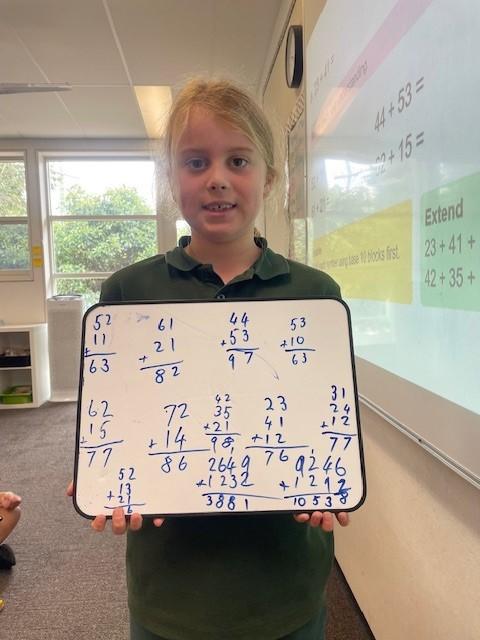 44 + 53 =
+ 15 =
number using base 10 blocks first.
Extend
23 + 41 +
42 + 35 +
52
11
+
63
61
21
+
82
44
+53
97
53
+10
63
62
15
+
77
72
+14
86
42
35
+21
98
23
41
+12
76
31
24
+12
77
52
13
+21
6
2649
+1232
3881
9246
+1292
10538